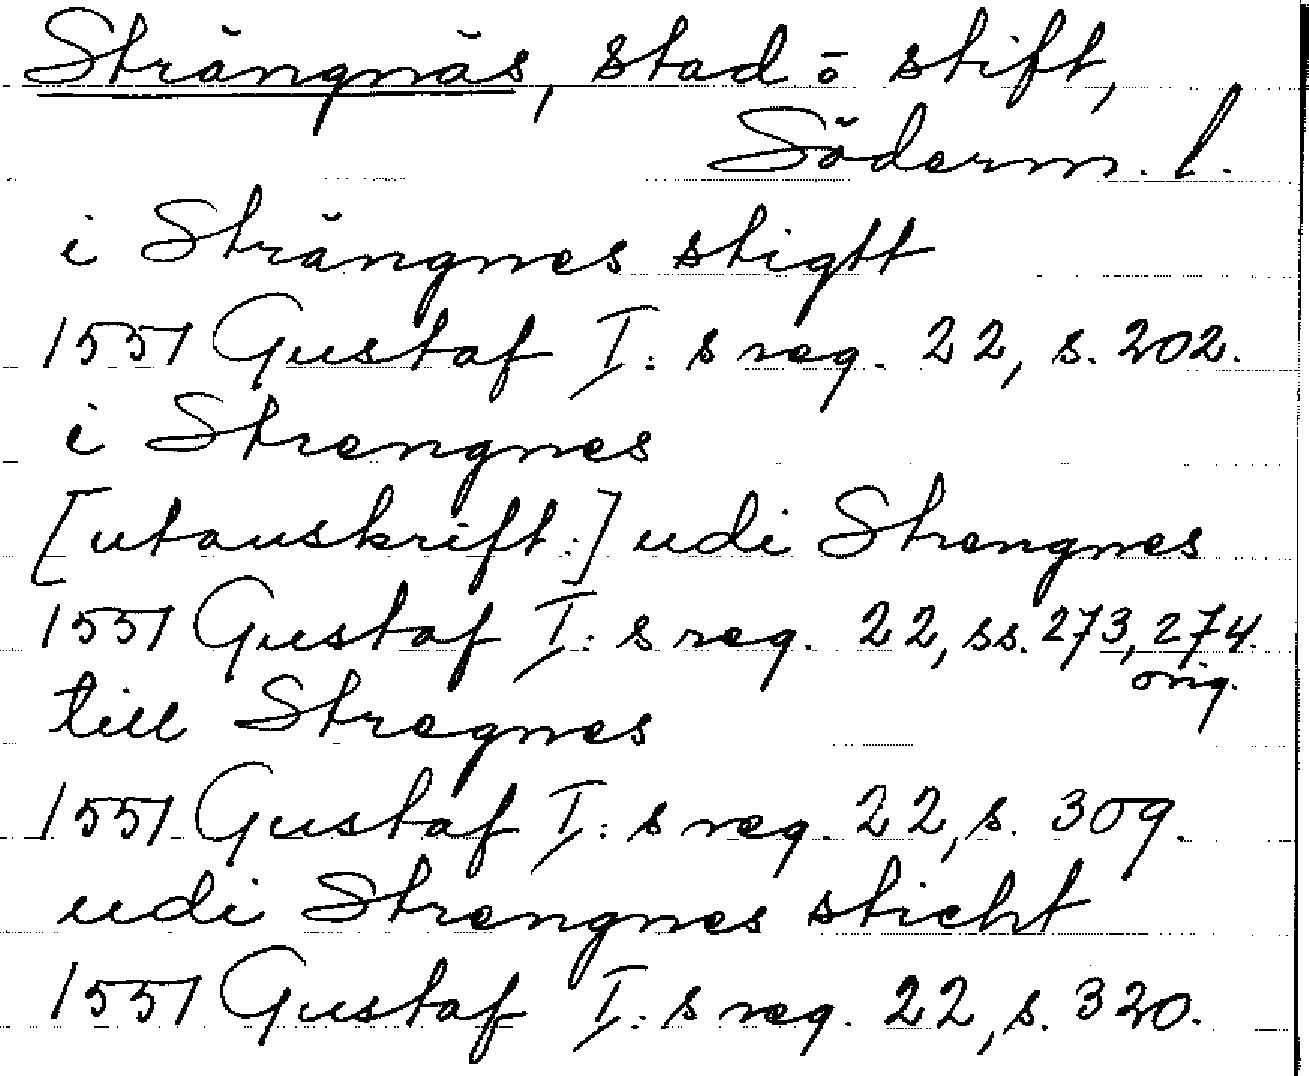 Strängnäs, stad o stift,
Söderm. l.
i Strängnes stigtt
1551 Gustaf I:s reg. 22, s. 202.
i Strengnes
[utanskrift:] udi Strengnes
1551 Gustaf I:s reg. 22, ss. 273, 274.
orig.
till Stregnes
1551 Gustaf I:s reg. 22, s. 309.
udi Strengnes sticht
1551 Gustaf I:s reg. 22, s. 320.